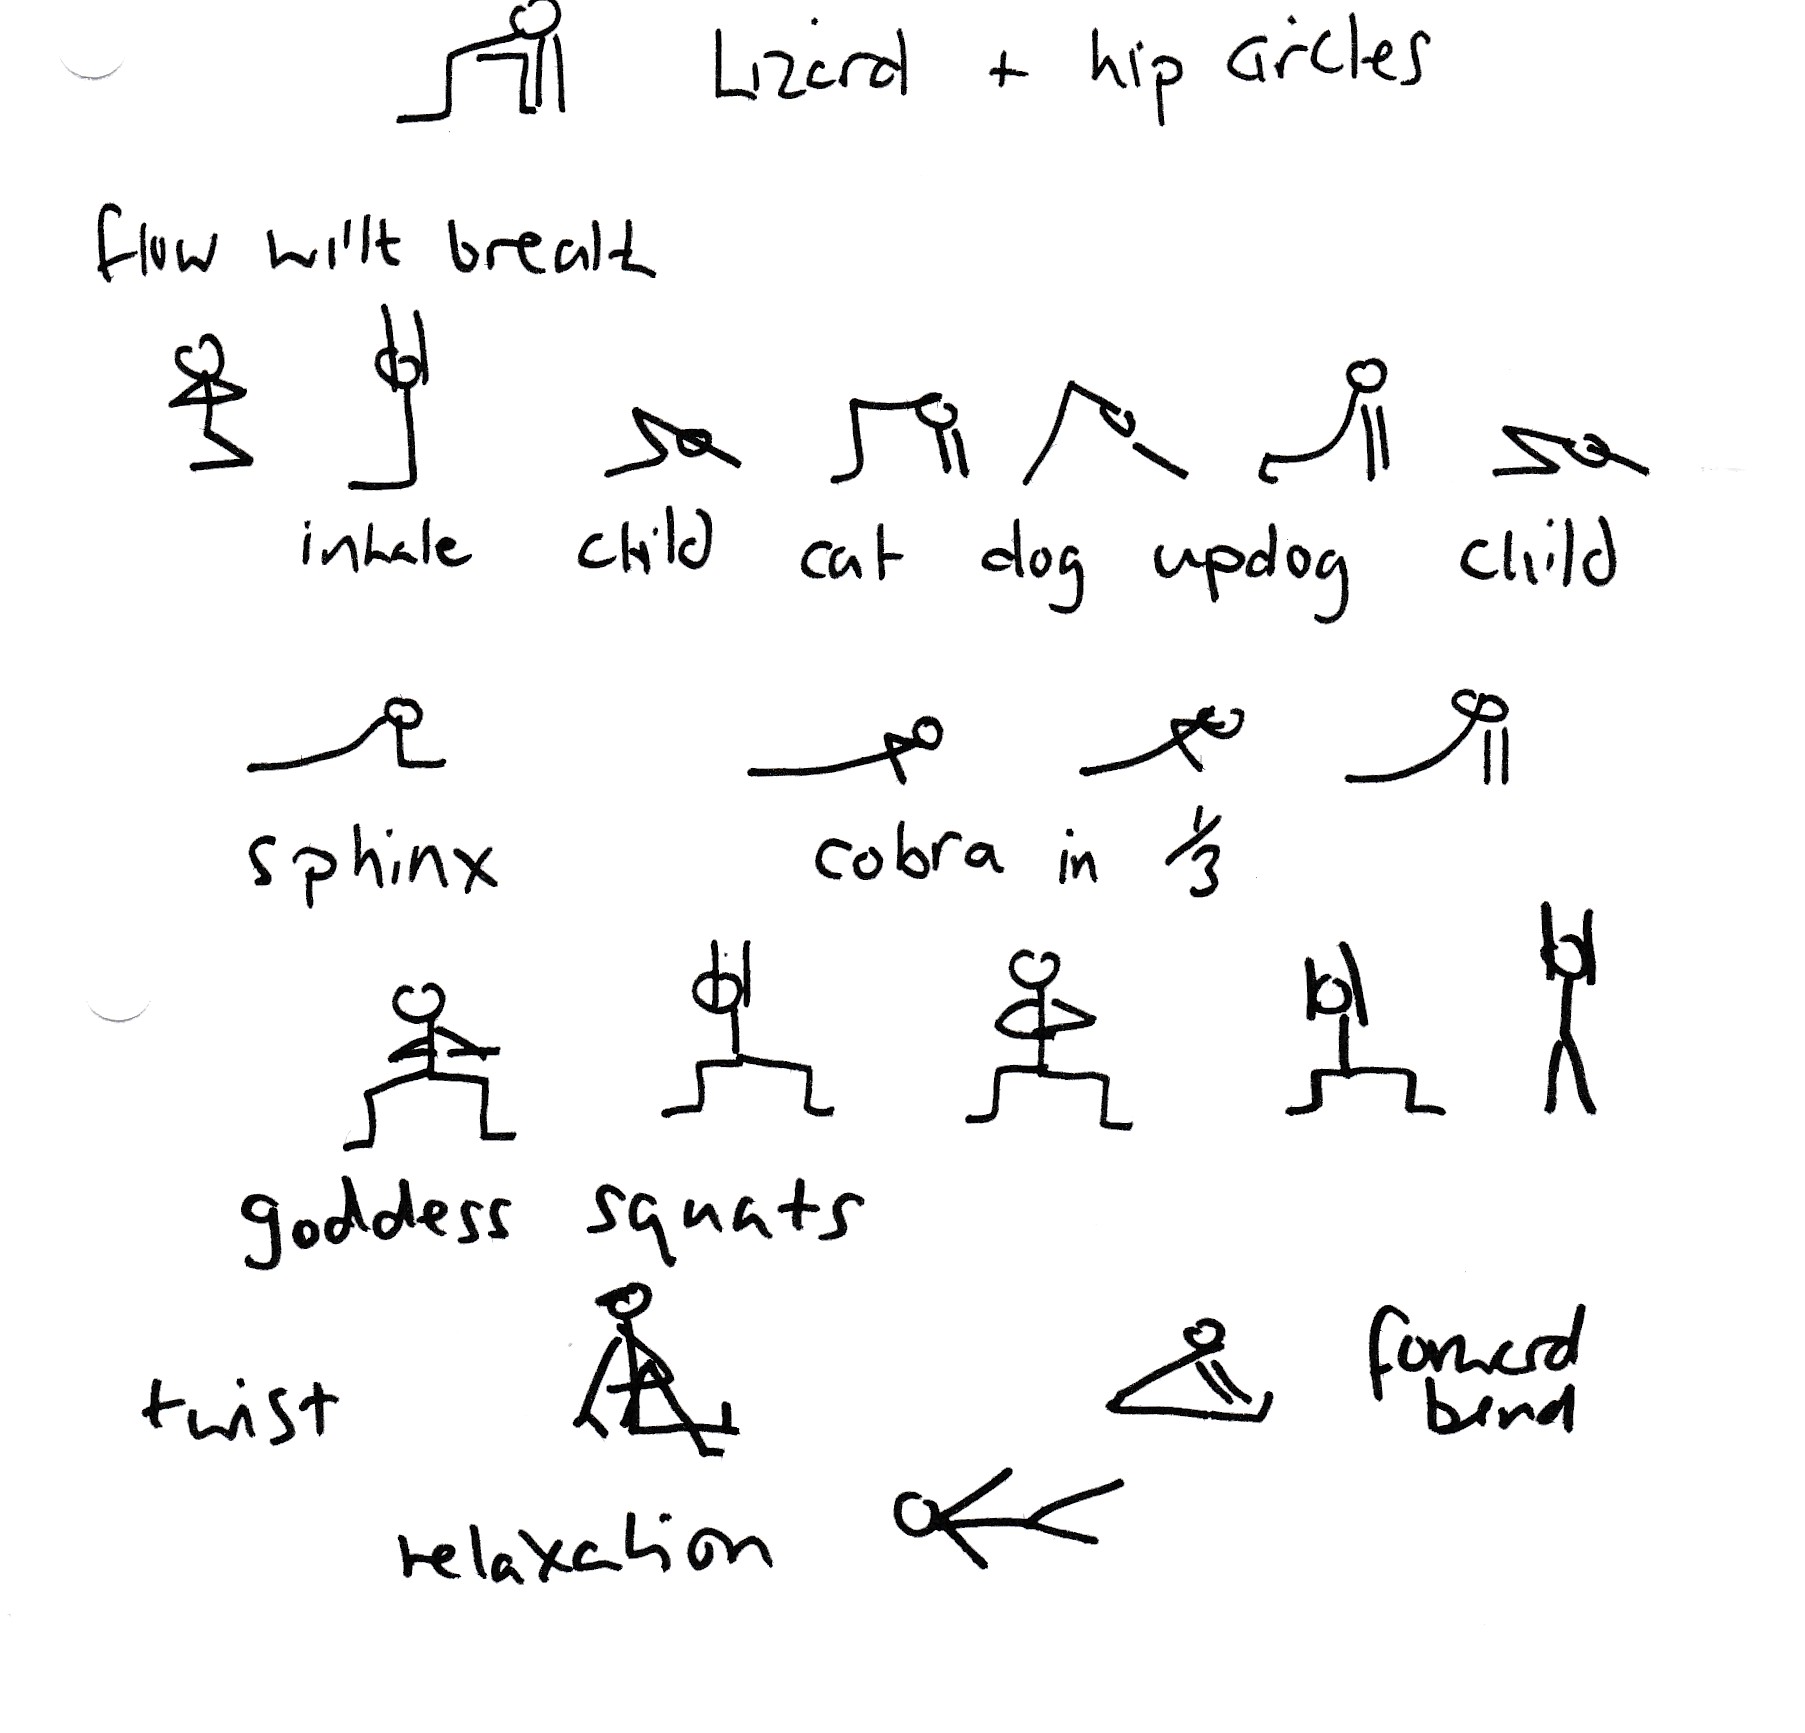 Lizard + hip circles
flow with breath
inhale child cat dog updog child
sphinx cobra in 1/3
goddess squats
twist
forward
bend
relaxation